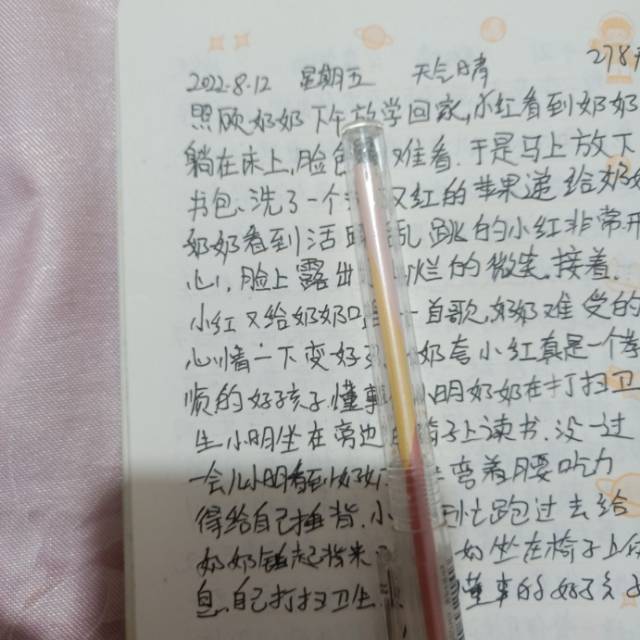 2022.8.12 星期五 天气晴 278
照顾奶奶下午放学回家,小红看到奶奶
躺在床上,脸色 难看.于是马上放下
书包.洗了一个 又红的苹果递给奶奶
奶奶看到活 乱跳的小红非常开
心,脸上露出 烂的微笑.接着.
小红又给奶奶唱 一首歌,奶奶难受的
心情一下变好 奶夸小红真是一个孝
顺的好孩子懂事 明奶奶在打扫卫
生小明坐在旁边 椅子上读书.没一过
一会儿小明看到奶奶 弯着腰吃力
得给自己捶背.小 忙跑过去给
奶奶捶起背来 奶坐在椅子上休
息.自己打扫卫生. 懂事的好孩子